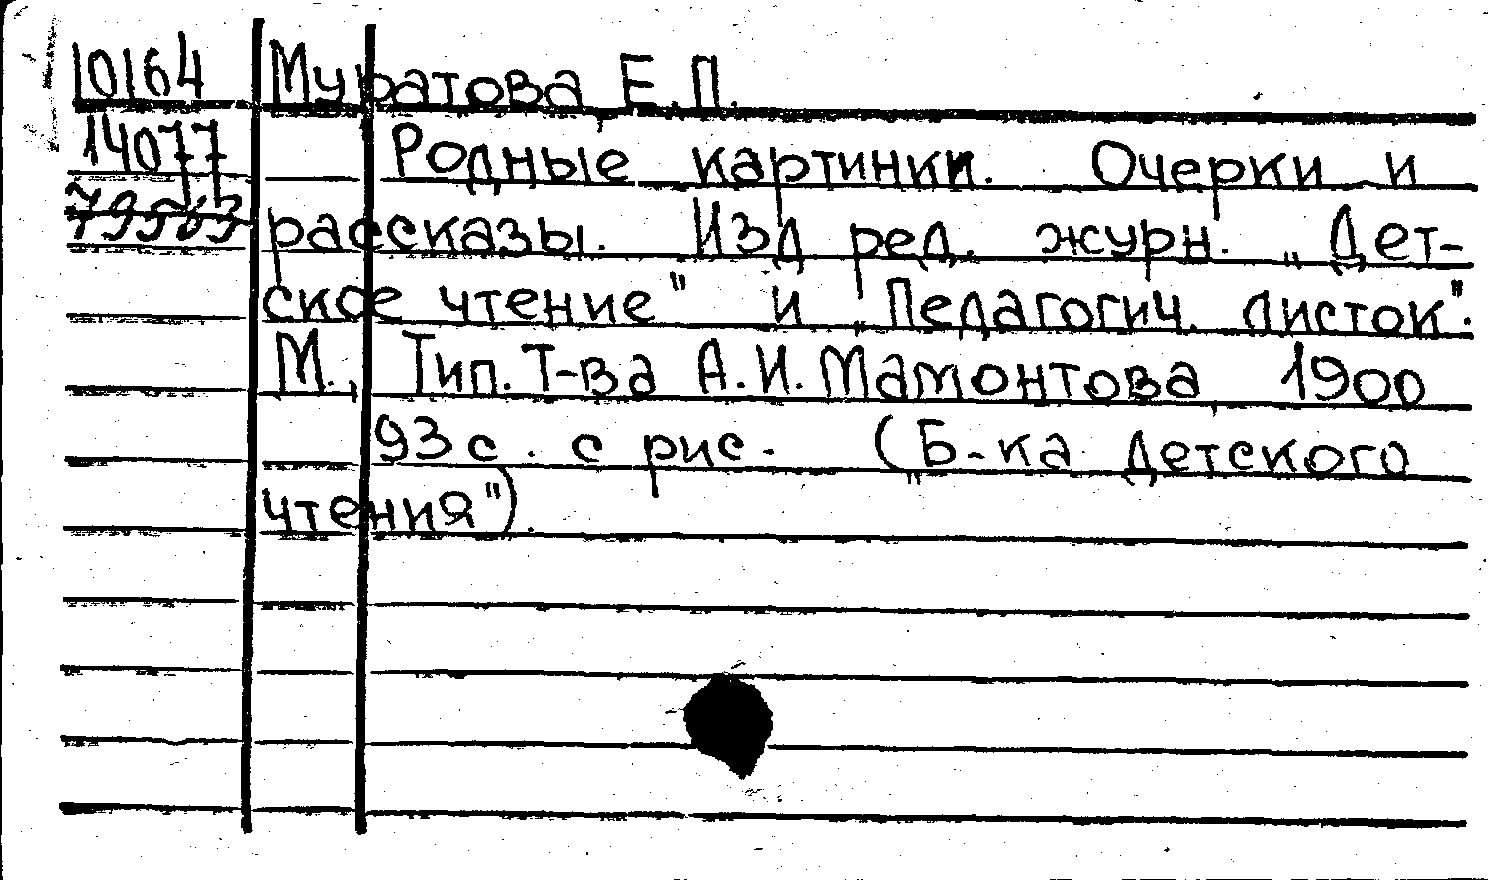 10164 Муратова Е.П.
14077 Родные картинки. Очерки и
79563 рассказы. Изд ред. журн. „Дет-
ское чтение" и „Педагогич. листок".
М., Тип. Т-ва А.И. Мамонтова, 1900
93 с. с рис. („Б-ка детского
чтения").